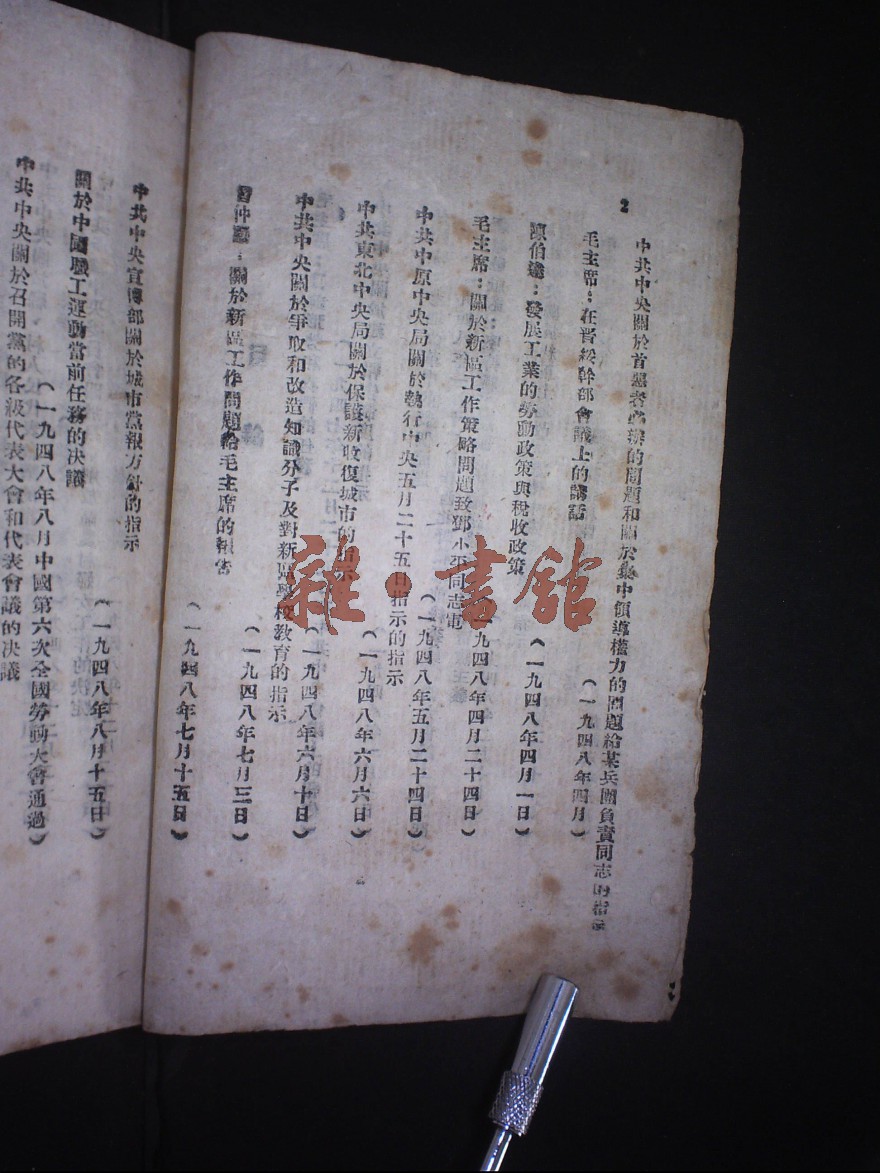 2
中共中央關於首惡者必辦的問題和關於集中領導權力的問題給某兵團負責同志的指示
(一九四八年四月)
毛主席:在晋綏幹部會議上的講話
(一九四八年四月一日)
陳伯達:發展工業的勞動政策與稅收政策
(一九四八年四月二十四日)
毛主席:關於新區工作策略問題致鄧小平同志電
(一九四八年五月二十四日)
中共中原中央局關於執行中央五月二十五日指示的指示
(一九四八年六月六日)
中共東北中央局關於保護新收復城市的指示
(一九四八年六月十日)
中共中央關於爭取和改造知識分子及對新區學校教育的指示
(一九四八年七月三日)
習仲勳:關於新區工作問題給毛主席的報告
(一九四八年七月十五日)
中共中央宣傳部關於城市黨報方針的指示
(一九四八年八月十五日)
關於中國職工運動當前任務的決議
(一九四八年八月中國第六次全國勞動大會通過)
中共中央關於召開黨的各級代表大會和代表會議的決議
雜·書館